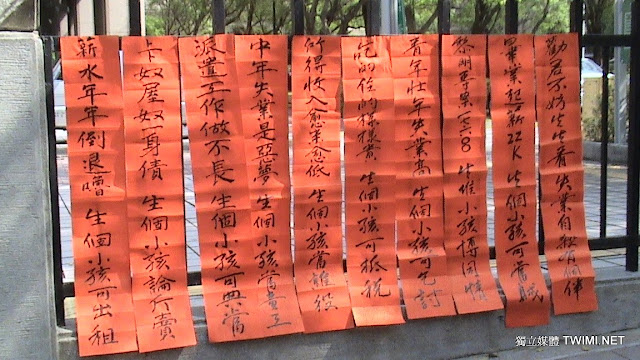 勸君不妨生生看 失業自殺有個伴
畢業起薪22K 生個小孩可當賊
8 生堆小孩博同情
青年壯年失業高 生個小孩可乞討
吃的住的樣樣貴 生個小孩可抵稅
所得收入愈來愈低 生個小孩當雜役
中年失業是惡夢 生個小孩當童工
派遣工作做不長 生個小孩可典當
卡奴屋奴一身債 生個小孩論斤賣
薪水年年倒退嚕 生個小孩可出租
獨立媒體 TWIMI.NET